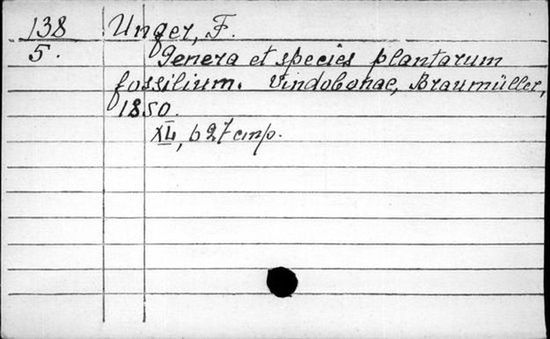 138 Unger, F.
5. Genera et species plantarum
fossilium. Vindobonae, Braumüller,
1850.
XL, 627 стр.